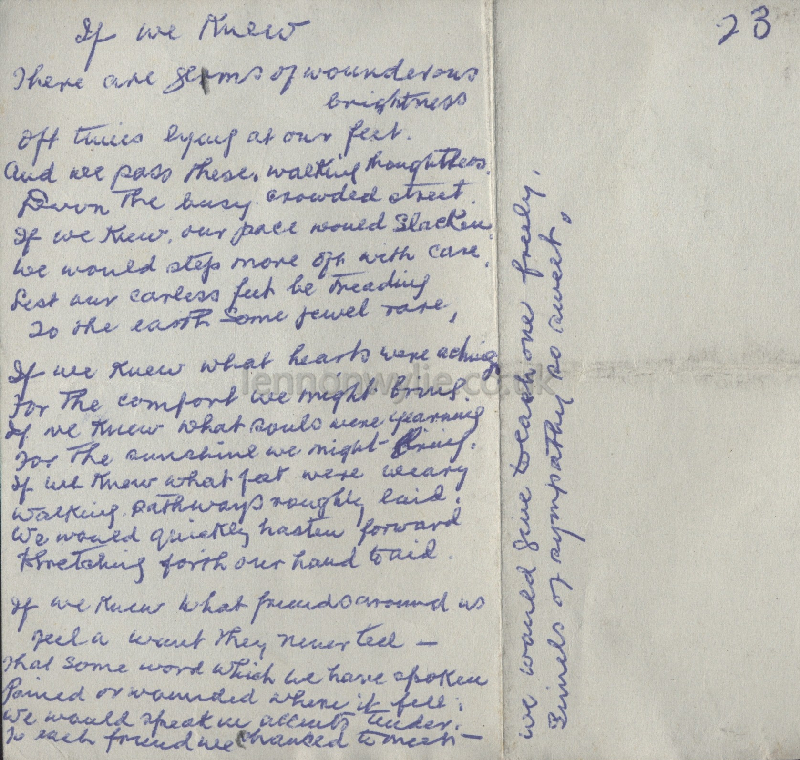 23
If we Knew
There are germs of wounderous
brightness
Oft times lying at our feet.
And we pass these, walking thoughtless.
Down The busy crowded street.
If we Knew, our pace would Slacken.
We would step more oft with care.
Lest our careless feet be treading
To the earth some jewel rare,
If we Knew what hearts were aching
For The comfort we might bring.
If we Knew what souls were yearning
For The sunshine we might bring.
If we Knew what feet were weary
Walking pathways roughly laid.
We would quickly hasten forward
Stretching forth our hand to aid.
If we Knew what friends around us
Feel a want they never tell —
That some word which we have spoken
Pained or wounded where it fell.
We would speak in accents tender.
To each friend we chanced to meet —
we would give to each one freely,
of sympathy so sweet,
lennonwylie.co.uk